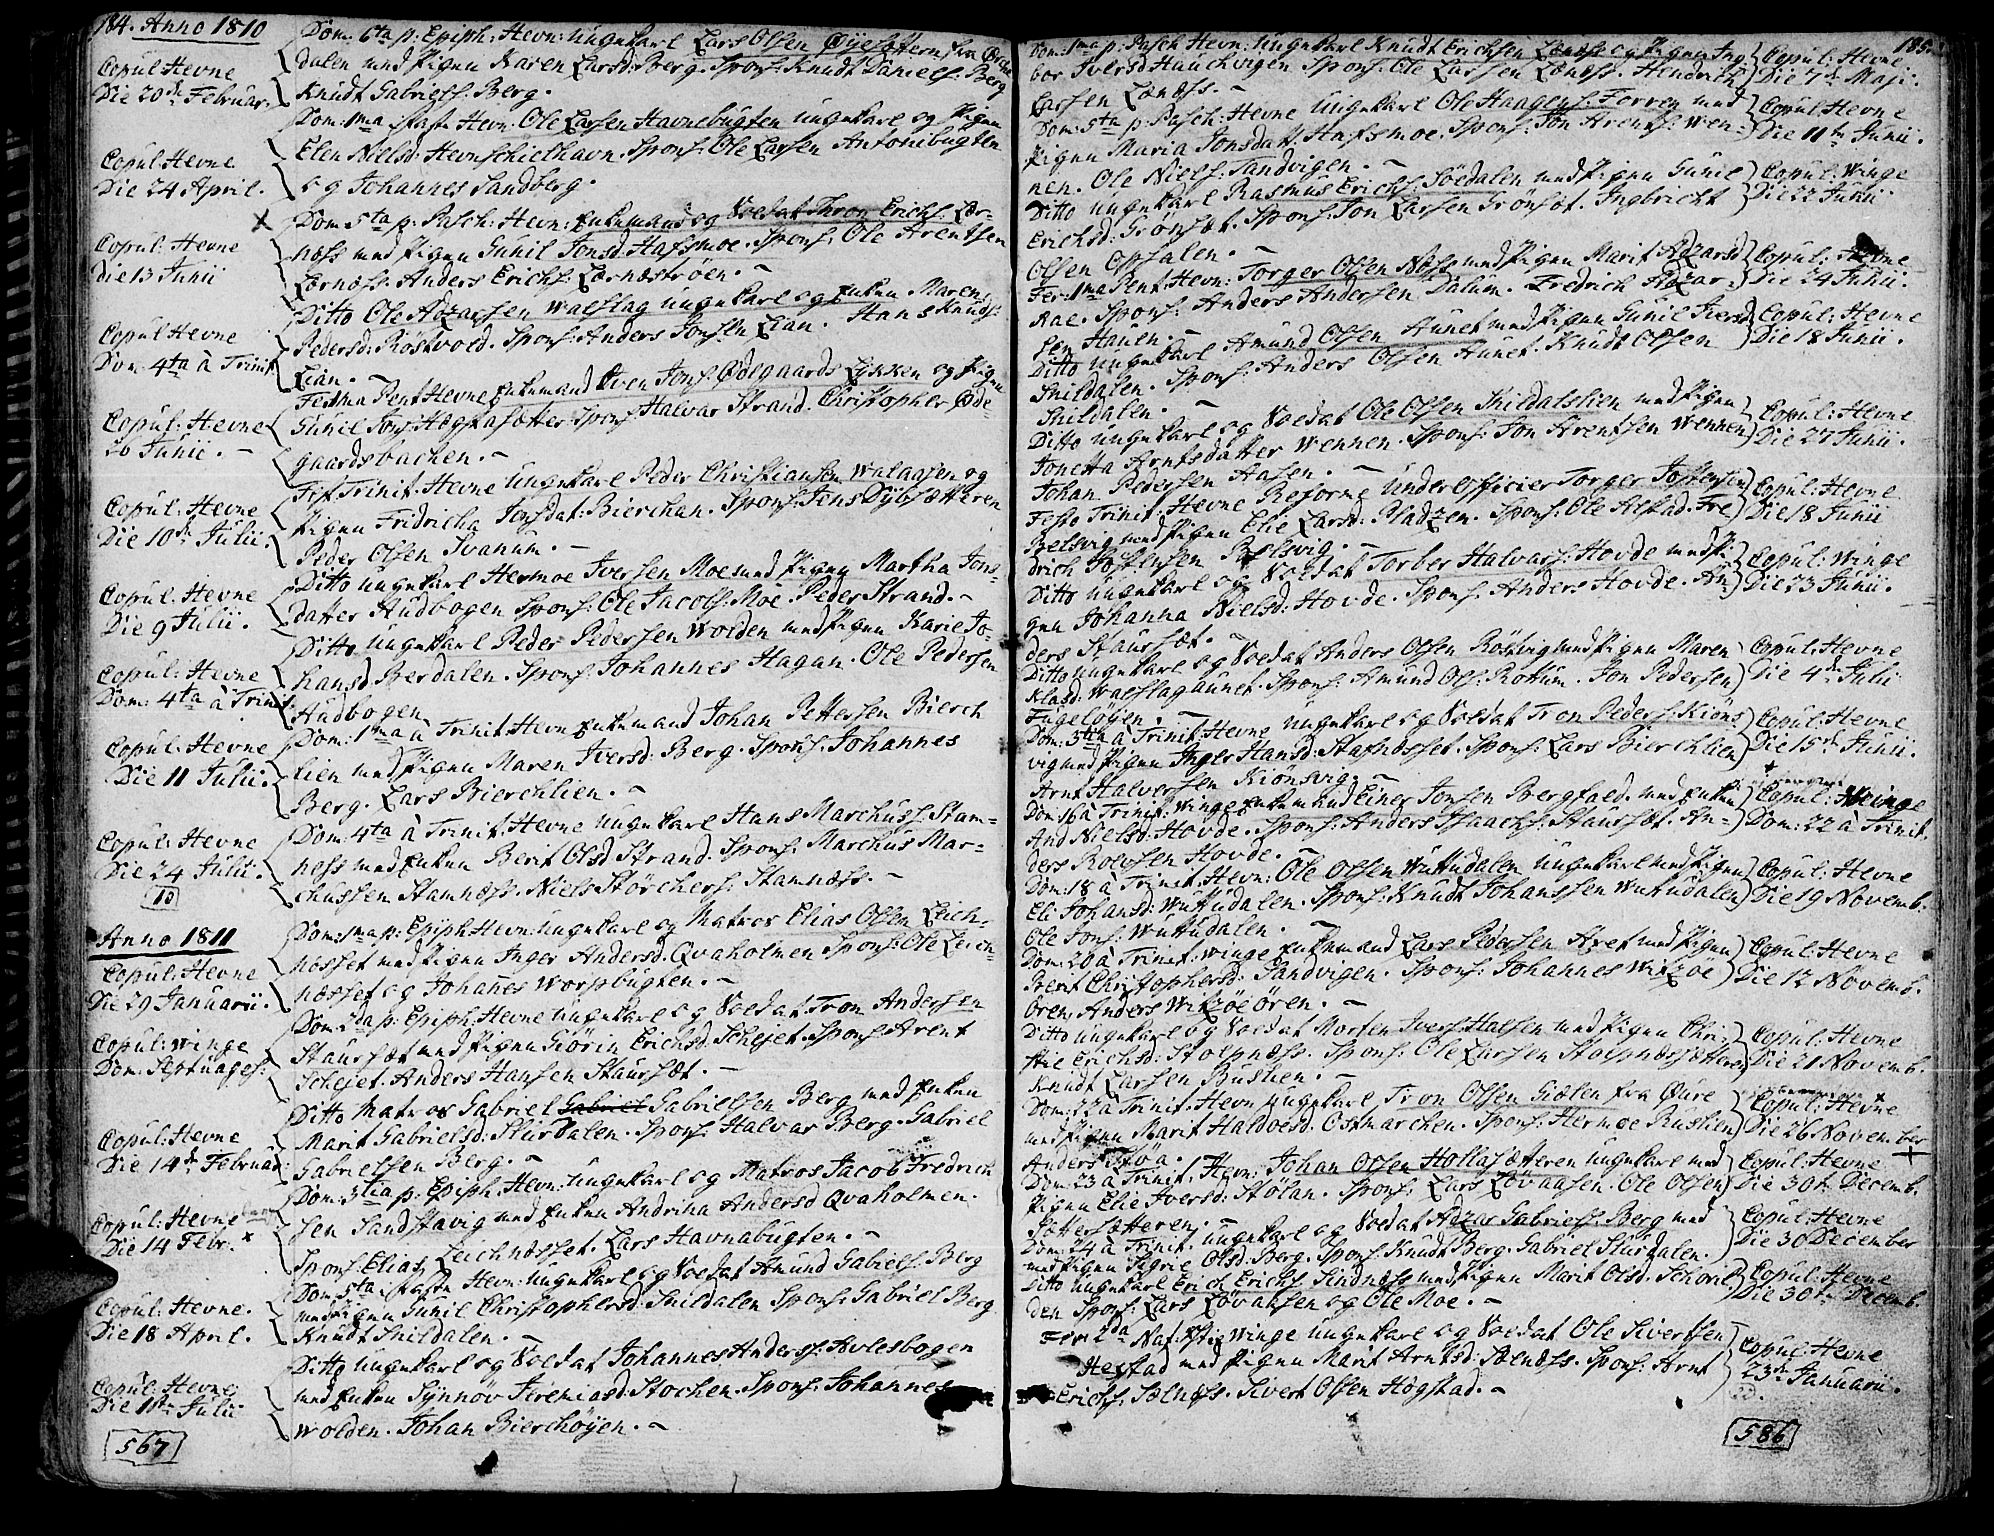 184. Anno 1810
Copul: Hevne
Die 20de Februar.
Dom. 6ta p: Epiph: Hevn: Ungekarl Lars Olsen Øyesættern, fra Ørke
dalen med Pigen Karen Larsd: Berg. Spons: Knudt Daniels: Berg
Knudt Gabriels: Berg.
Copul: Hevne
Die 24 April.
Dom: 1ma Pasch: Hevn. Ole Larsen Havnebugten Ungekarl og Pigen
Elen Nielsd: Hevnschielhavn. Spons: Ole Larsen Antonibugten
og Johannes Sandberg.
Copul: Hevne
Die 13 Junii
Dom: 5ta p: Pasch: Hevn: Enkemand og Soldat Thron Erichs: Lær-
næss med Pigen Gunil Jonsd: Hafsmoe. Spons: Ole Arentsen
Lærnæss. Anders Erichs: Lærnæstrøen. -
Copul: Hevne
Dom: 4ta à Trinit
Ditto Ole Adzarsen Walslag Ungekarl og Enken Maren
Pedersd: Röstvold. Spons: Anders Jonsen Lian. Hans Knuds:
Lian. -
Copul: Hevne
26 Junii. -
Fer: 1ma Pent Hevne Enkemand Even Jons: Ödegaards Løkken og Pigen
Gunil Jons: Hegstasætter. Spons: Halvar Strand. Christopher Öde
gaardsbachen. -
Copul: Hevne
Die 10de Julii.
Fest. Trinit. Hevne Ungekarl Peder Christiansen Walaasen og
Pigen Fridricha Jonsdat: Bierchan. Spons: Jens Dybsætteren
Peder Olsen Svanum. -
Copul: Hevne
Die 9 Julii.
Ditto Ungekarl Hermoe Iversen Moe med Pigen Martha Jons-
datter Audbogen Spons: Ole Jacobs: Moe. Peder Strand. -
Copul: Hevne
Dom: 4ta à Trinit.
Ditto Ungekarl Peder Pedersen Wolden med Pigen Karie Jo-
hansd: Berdalen. Spons: Johannes Hagan. Ole Pedersen
Audbogen
Copul: Hevne
Die 11 Julii.
Dom: 1ma à Trinit: Hevn Enkemand Johan Pettersen Bierch
lien med Pigen Maren Iversd: Berg. Spons: Johannes
Berg. Lars Bierchlien. -
Copul: Hevne
Die 24 Julii.
Dom: 4ta à Trinit: Hevne Ungekarl Hans Marchuss: Stam-
ness med Enken Berit Olsd Strand. Spons: Marchus Mar-
chussen Stamnæss. Niels Störchers: Stamnæss. -
Anno 1811
Copul: Hevne
Die 29 Januarii.
Dom: 1ma p: Epiph Hevn: Ungekarl og Matros Elias Olsen Leich-
næsset med Pigen Inger Andersd. Qvaholmen Spons: Ole Leich-
næsset og Johanes Worpbugten. -
Copul: Winge
Dom: Septuages:
Dom: 2da p: Epiph: Hevne Ungekarl og Soldat Tron Andersen
Staursæt med Pigen Giörin Erichsd: Schejet. Spons: Arent
Schejet. Anders Hansen Staursæt. -
Copul: Hevne
Die 14de Februar:
Ditto Matros Gabriel Gabriel Gabrielsen Berg med Enken
Marit Gabrielsd: Sturdalen. Spons: Halvar Berg. Gabriel
Gabrielsen Berg. -
Copul: Hevne
Die 14 Febr. x
Dom: 3tia p: Epiph: Hevn: Ungekarl og Matros Jacob Fredrich
sen Sandstavig med Enken Andrina Andersd Qvaholmen.
Spons: Elias Leichnæsset. Lars Havnabugten. -
Copul: Hevne.
Die 18 April.
Dom: 5ta Hevn: Ungekarl og Soldat Amund Gabriels: Berg
med Pigen Gunil Christophersd: Snildalen Spons: Gabriel Berg
Knudt Snildalen. -
Copul: Hevne
Die 1ste Julii
Ditto Ungekarl og Soldat Johannes Anders: Avlesbogen
med Enken Synnöv Jeremiasd: Stochen. Spons: Johannes
Wolden. Johan Bierchöyen. -
567
185.
Dom: 1ma p: Pasch Hevn: Ungekarl Knudt Erichsen Lænæss og Pigen Ing
bor Iversd Hauchvigen Spons: Ole Larsen Lænæss. Hendrich
Larsen Lænæss. -
Copul: Hevne
Die 7de Maji.
Dom: 5ta p: Pasch: Hevne Ungekarl Ole Haagens: Forren med
Pigen Maria Jonsdat: Hafsmoe. Spons: Jon Arents: Wen-
nen. Ole Niels: Sandvigen. -
Copul: Hevne
Die 11te Junii.
Ditto Ungekarl Rasmus Erichs: Söedalen med Pigen Gunil
Erichsd: Grönsæt. Spons: Jon Larsen Grönsæt. Ingbricht
Olsen Opsalen. -
Copul: Winge
Die 22 Junii
Fer: 1ma Pent Hevn: Torger Olsen Næss med Pigen Marit Adzarsd
Rae. Spons: Anders Andersen Dalum. Fredrich Adzar-
sen Hauen. -
Copul: Hevne
Die 24 Junii.
Ditto Ungekarl Amund Olsen Aunet med Pigen Gunil Iversd
Snildalen. Spons: Anders Olsen Aunet. Knudt Olsen
Snildalen. -
Copul: Hevne
Die 18 Junii.
Ditto Ungekarl og Soldat Ole Olsen Snildalslien med Pigen
Jonetta Arntsdatter Wennen. Spons: Jon Arentsen Wennen
Johan Pedersen Aasen. -
Copul: Hevne
Die 27 Junii.
Festo Trinit: Hevne Reforne Underofficier Torger Jostensen
Belsvig med Pigen Elie Larsd: Pladzen. Spons: Ole Alstad. Fre
drich Jostensen Belsvig. -
Copul: Hevne
Die 18 Junii
Ditto Ungekarl og Soldat Torber Halvars: Hovde med Pi
gen Johanna Nielsd: Hovde. Spons: Anders Hovde. An
ders Staursæt. -
Copul: Winge
Die 23 Junii.
Ditto Ungekarl og Soldat Anders Olsen Röstvig med Pigen Maren
Klasd: Walslagaunet. Spons: Amund Ols: Rokum. Jon Pedersen
Fugelöyen. -
Copul: Hevne
Die 4de Julii
Dom: 3tia à Trinit: Hevne Ungekarl og Soldat Tron Peders: Kiöns
vig med Pigen Inger Hansd: Stafnæsset. Spons: Lars Bierchlien
Arnt Halversen Kiönsvig. -
Copul: Hevne
Die 15de Junii.
Dom: 16 à Trinit: Winge Enkemand Einer Jonsen Bergfald. med Enken
And Nielsd: Hovde. Spons: Anders Isaachs: Staursæt. An-
ders Roelsen Hovde. -
Copul: Winge
Dom: 22 à Trinit.
Dom: 18 à Trinit: Hevn: Ole Olsen Wuttudalen Ungekarl med Pigen
Eli Johansd: Wuttudalen. Spons: Knudt Johanssen Wuttudalen
Ole Jons: Wuttudalen. -
Copul: Hevne
Die 19 Novemb.
Dom: 20 à Trinit: Winge Enkemand Lars Pedersen Axet med Pigen
Berit Christophersd: Sandvigen. Spons: Johannes Witzöe
Ören. Anders Witzöe ören. -
Copul: Hevne
Die 12 Novemb.
Ditto Ungekarl og Soldat Morten Ivers: Halsen med Pigen Chri-
stie Erichsd: Stolpnæss. Spons: Ole Larsen Stolpnæssætteren
Knudt Larsen Buslien. -
Copul: Hevne
Die 21 Novemb.
Dom: 22 à Trinit: Hevn Ungekarl Tron Olsen Giælen fra Öure
med Pigen Marit Haldoesd: Ostmarchen. Spons: Hermoe Ruslien
Anders Stöa. -
Copul: Hevne
Die 26 November
Dom: 23 à Trinit: Hevn: Johan Olsen Hollasætteren Ungekarl med
Pigen Elie Iversd: Stölan. Spons: Lars Lövaasen. Ole Olsen
Sættersætteren. -
Copul: Hevne
Die 30te Decemb.
Dom: 24 à Trinit. Ungekarl og Soldat Adzar Gabriels: Berg med
med Pigen Sigrie Olsd: Berg. Spons: Knudt Berg. Gabriel Sturdalen.
Copul: Hevne
Die 30 December
Ditto Ungekarl Erich Erichs: Sindnæss med Pigen Marit Olsd. Schoriel
den Spons: Lars Lövaasen og Ole Moe. -
Copul: Hevne
Die 30te Decemb.
Fer: 2da Nat: Xsti Winge Ungekarl og Soldat Ole Sivertsen
Hestad med Pigen Marit Arntsd: Sælnæss. Spons: Arnt
Erichs: Sælnæss. Sivert Olsen Högstad. -
Copul: Hevne
23de Januarii.
586